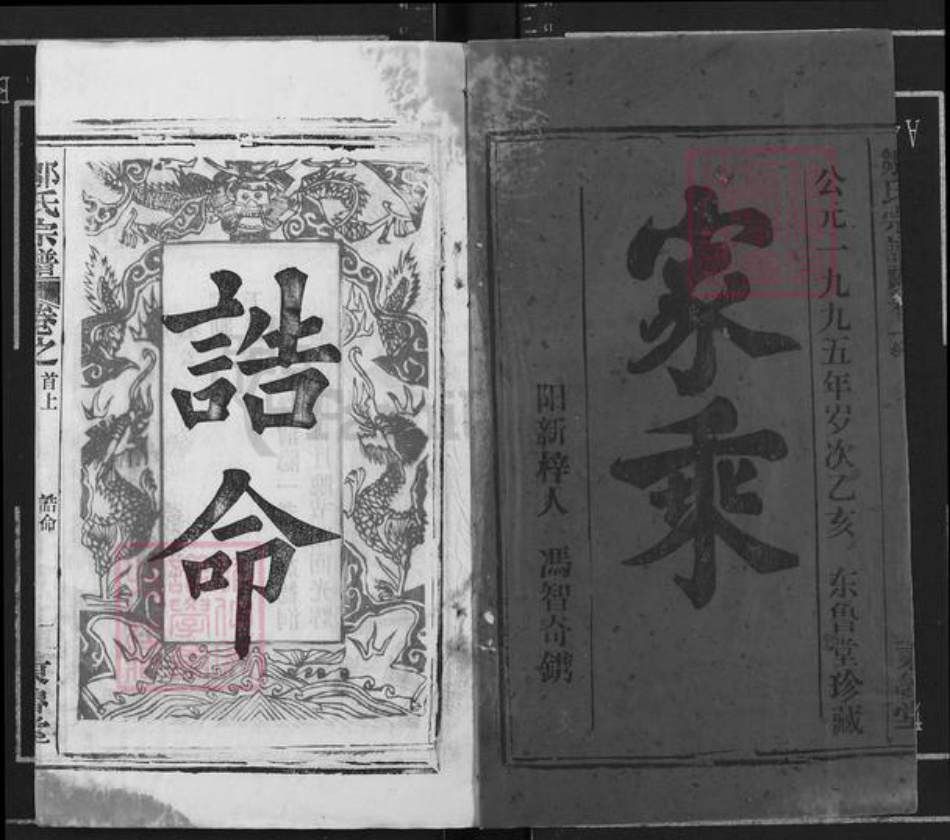 公元一九九五年岁次乙亥 东鲁堂珍藏
家乘
阳新梓人 馮智奇鐫
誥命
氏宗譜 卷之 首上 誥命